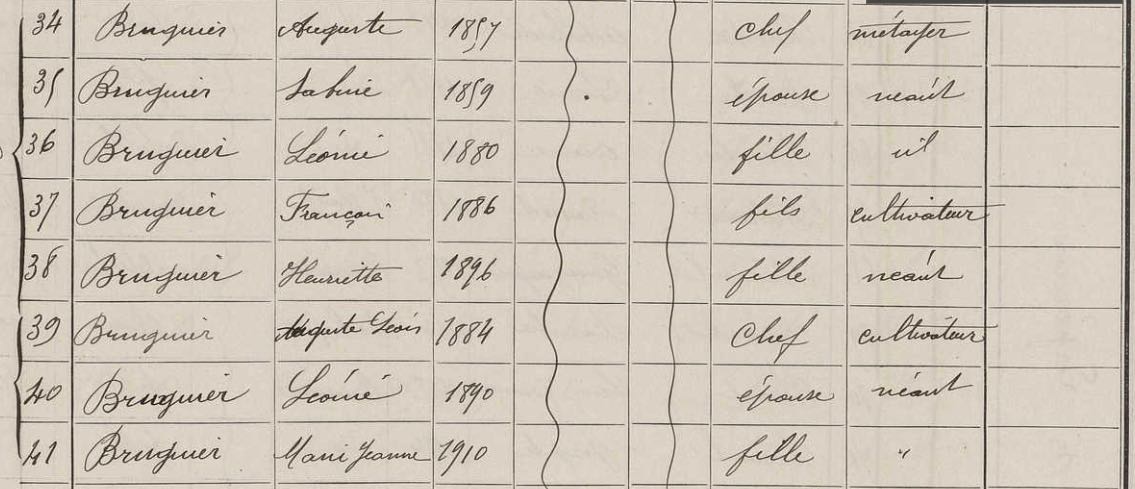 34 Bruguier Auguste 1857 chef métayer
35 Bruguier Sabine 1859 épouse néant
36 Bruguier Léonie 1880 fille
37 Bruguier François 1886 fils cultivateur
38 Bruguier Henriette 1896 fille néant
39 Bruguier Auguste 1884 chef cultivateur
40 Bruguier Léonie 1890 épouse néant
41 Bruguier Marie Jeanne 1910 fille "